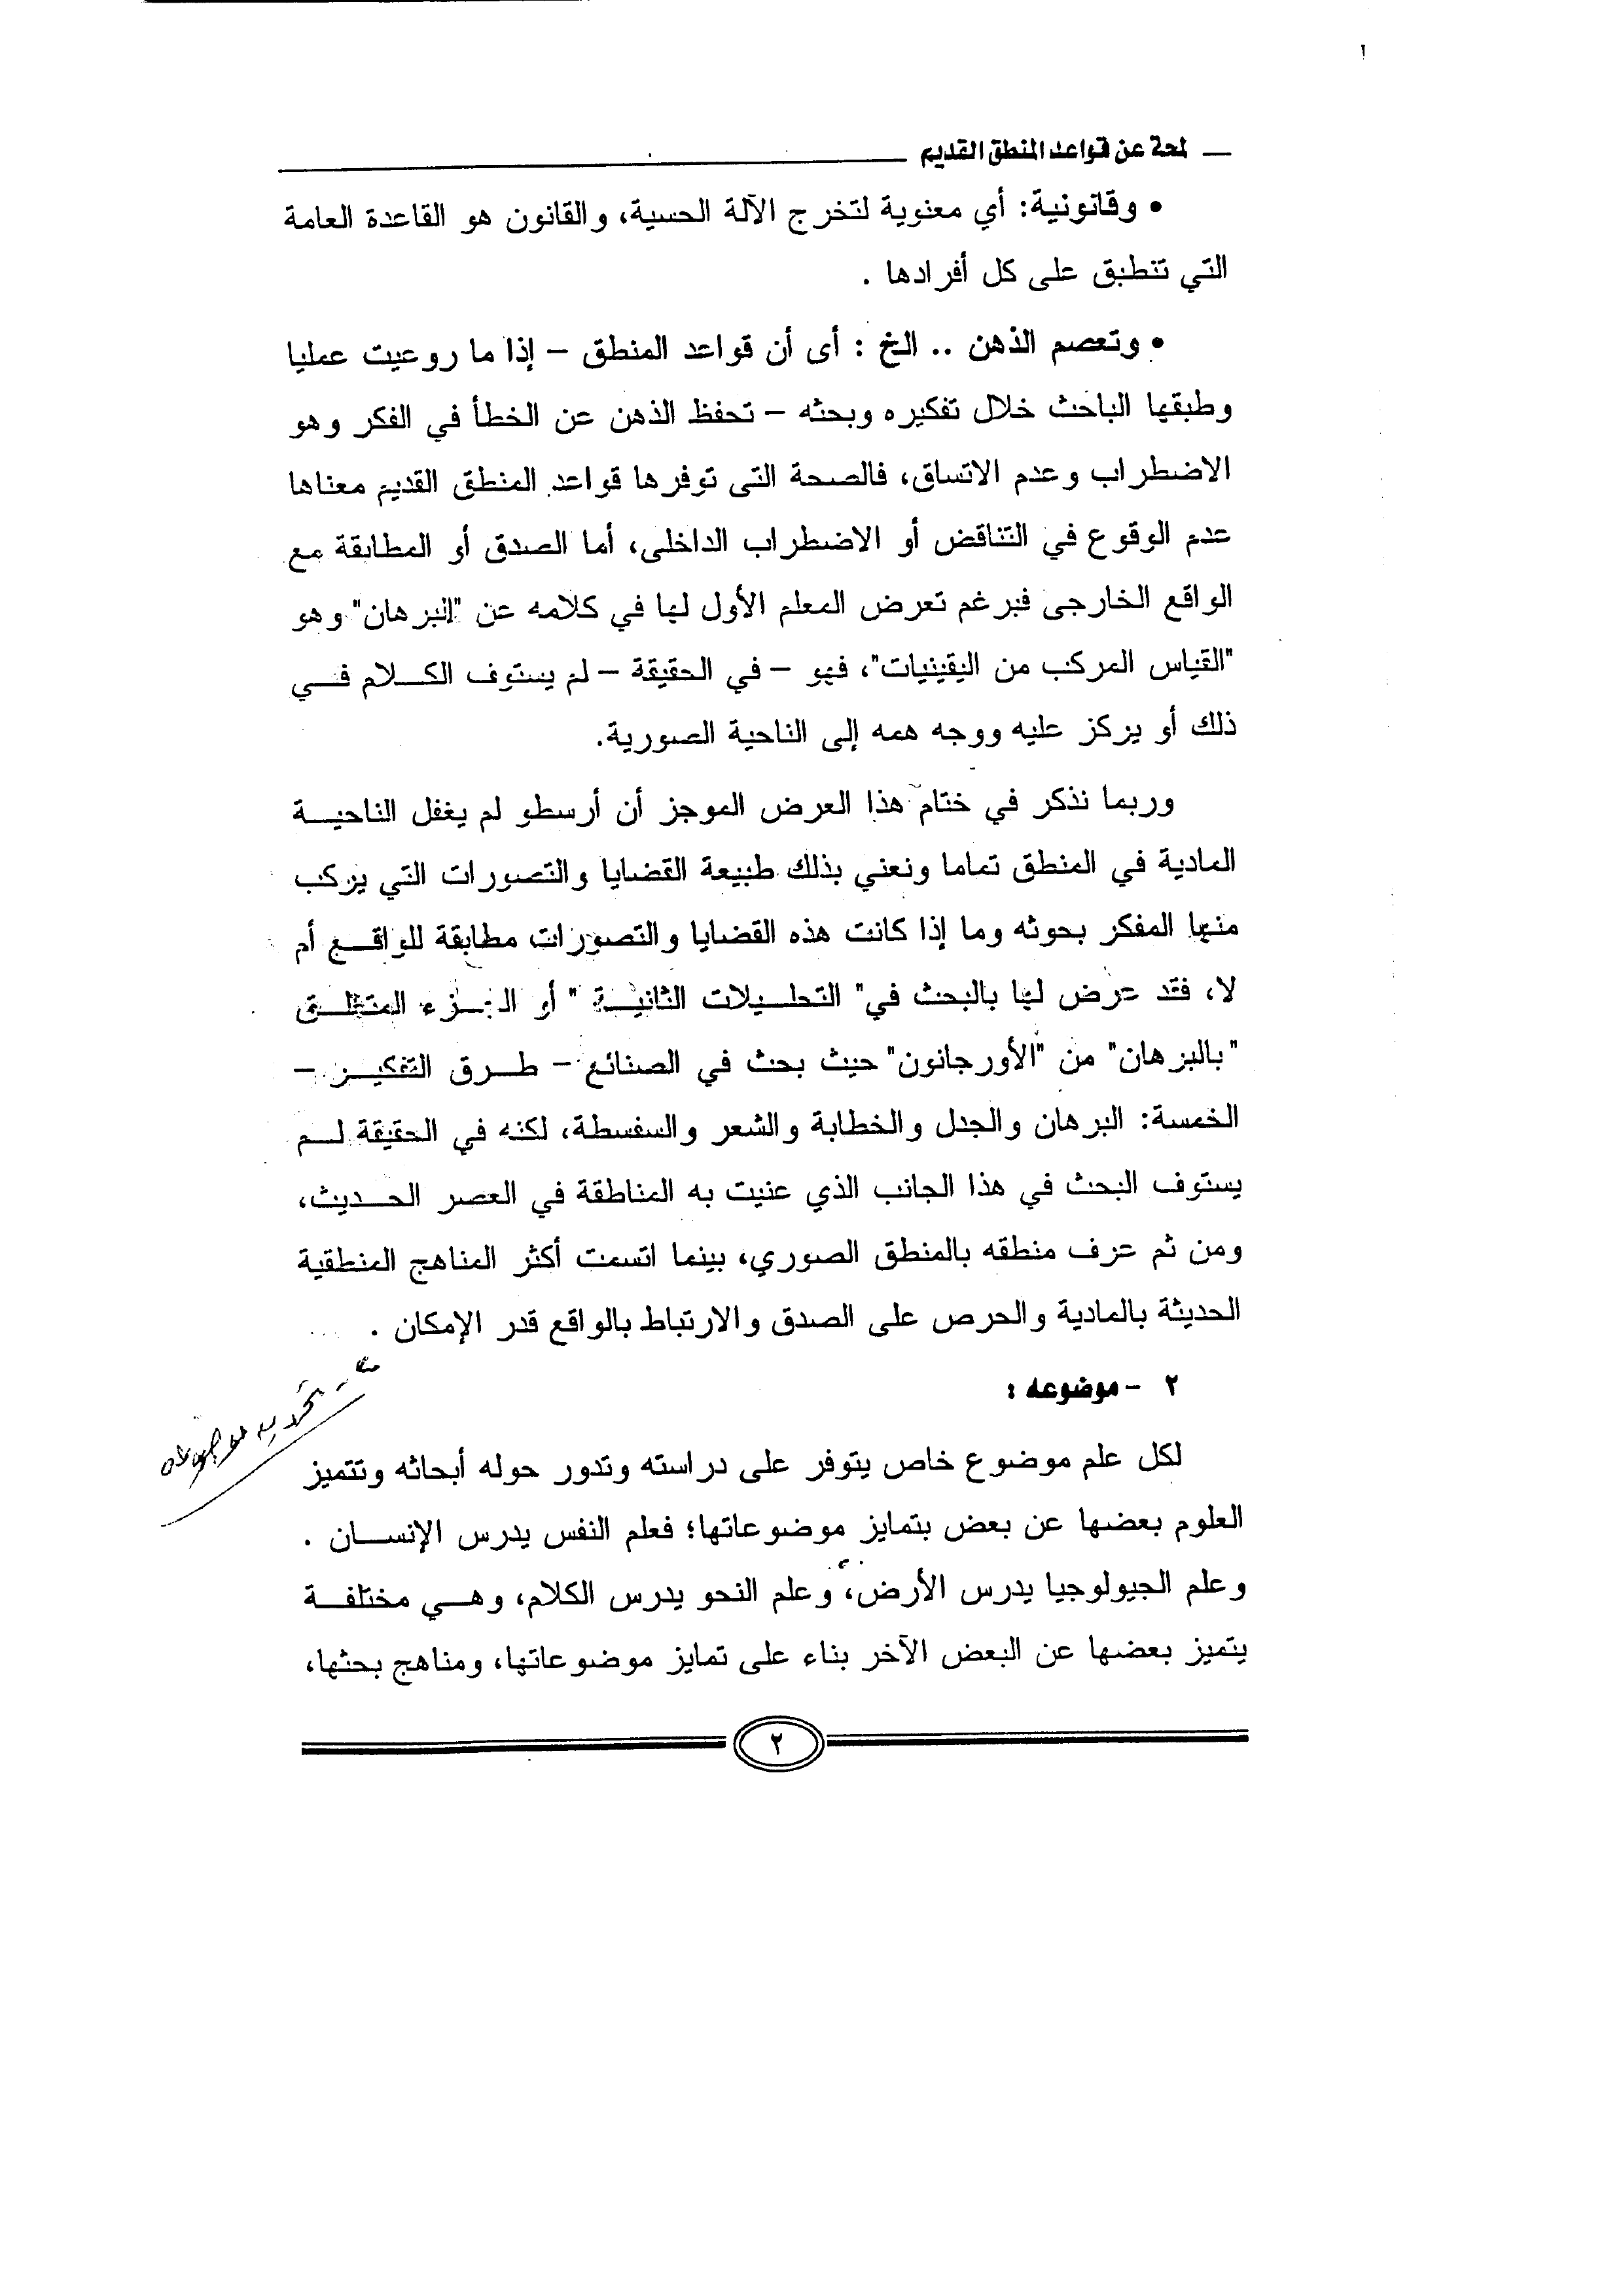 لمحة عن قواعد المنطق القديم
• وقانونية: أي معنوية لتخرج الآلة الحسية، والقانون هو القاعدة العامة
التي تنطبق على كل أفرادها .
• وتعصم الذهن .. الخ : أى أن قواعد المنطق – إذا ما روعيت عمليا
وطبقها الباحث خلال تفكيره وبحثه – تحفظ الذهن عن الخطأ في الفكر وهو
الاضطراب وعدم الاتساق، فالصحة التى توفرها قواعد المنطق القديم معناها
عدم الوقوع في التناقض أو الاضطراب الداخلى، أما الصدق أو المطابقة مع
الواقع الخارجى فبرغم تعرض المعلم الأول لها في كلامه عن "البرهان" وهو
"القياس المركب من اليقينيات"، فهو – في الحقيقة – لم يستوف الكلام في
ذلك أو يركز عليه ووجه همه إلى الناحية الصورية.
وربما نذكر في ختام هذا العرض الموجز أن أرسطو لم يغفل الناحية
المادية في المنطق تماما ونعني بذلك طبيعة القضايا والتصورات التي يركب
منها المفكر بحوثه وما إذا كانت هذه القضايا والتصورات مطابقة للواقع أم
لا، فقد عرض لها بالبحث في" التحليلات الثانية " أو الجزء المتعلق
"بالبرهان" من "الأورجانون" حيث بحث في الصنائع – طرق التفكير –
الخمسة: البرهان والجدل والخطابة والشعر والسفسطة، لكنه في الحقيقة لم
يستوف البحث في هذا الجانب الذي عنيت به المناطقة في العصر الحديث،
ومن ثم عرف منطقه بالمنطق الصوري، بينما اتسمت أكثر المناهج المنطقية
الحديثة بالمادية والحرص على الصدق والارتباط بالواقع قدر الإمكان .
٢ – موضوعه :
لكل علم موضوع خاص يتوفر على دراسته وتدور حوله أبحاثه وتتميز
العلوم بعضها عن بعض بتمايز موضوعاتها؛ فعلم النفس يدرس الإنسان .
وعلم الجيولوجيا يدرس الأرض، وعلم النحو يدرس الكلام، وهي مختلفة
يتميز بعضها عن البعض الآخر بناء على تمايز موضوعاتها، ومناهج بحثها،
٢